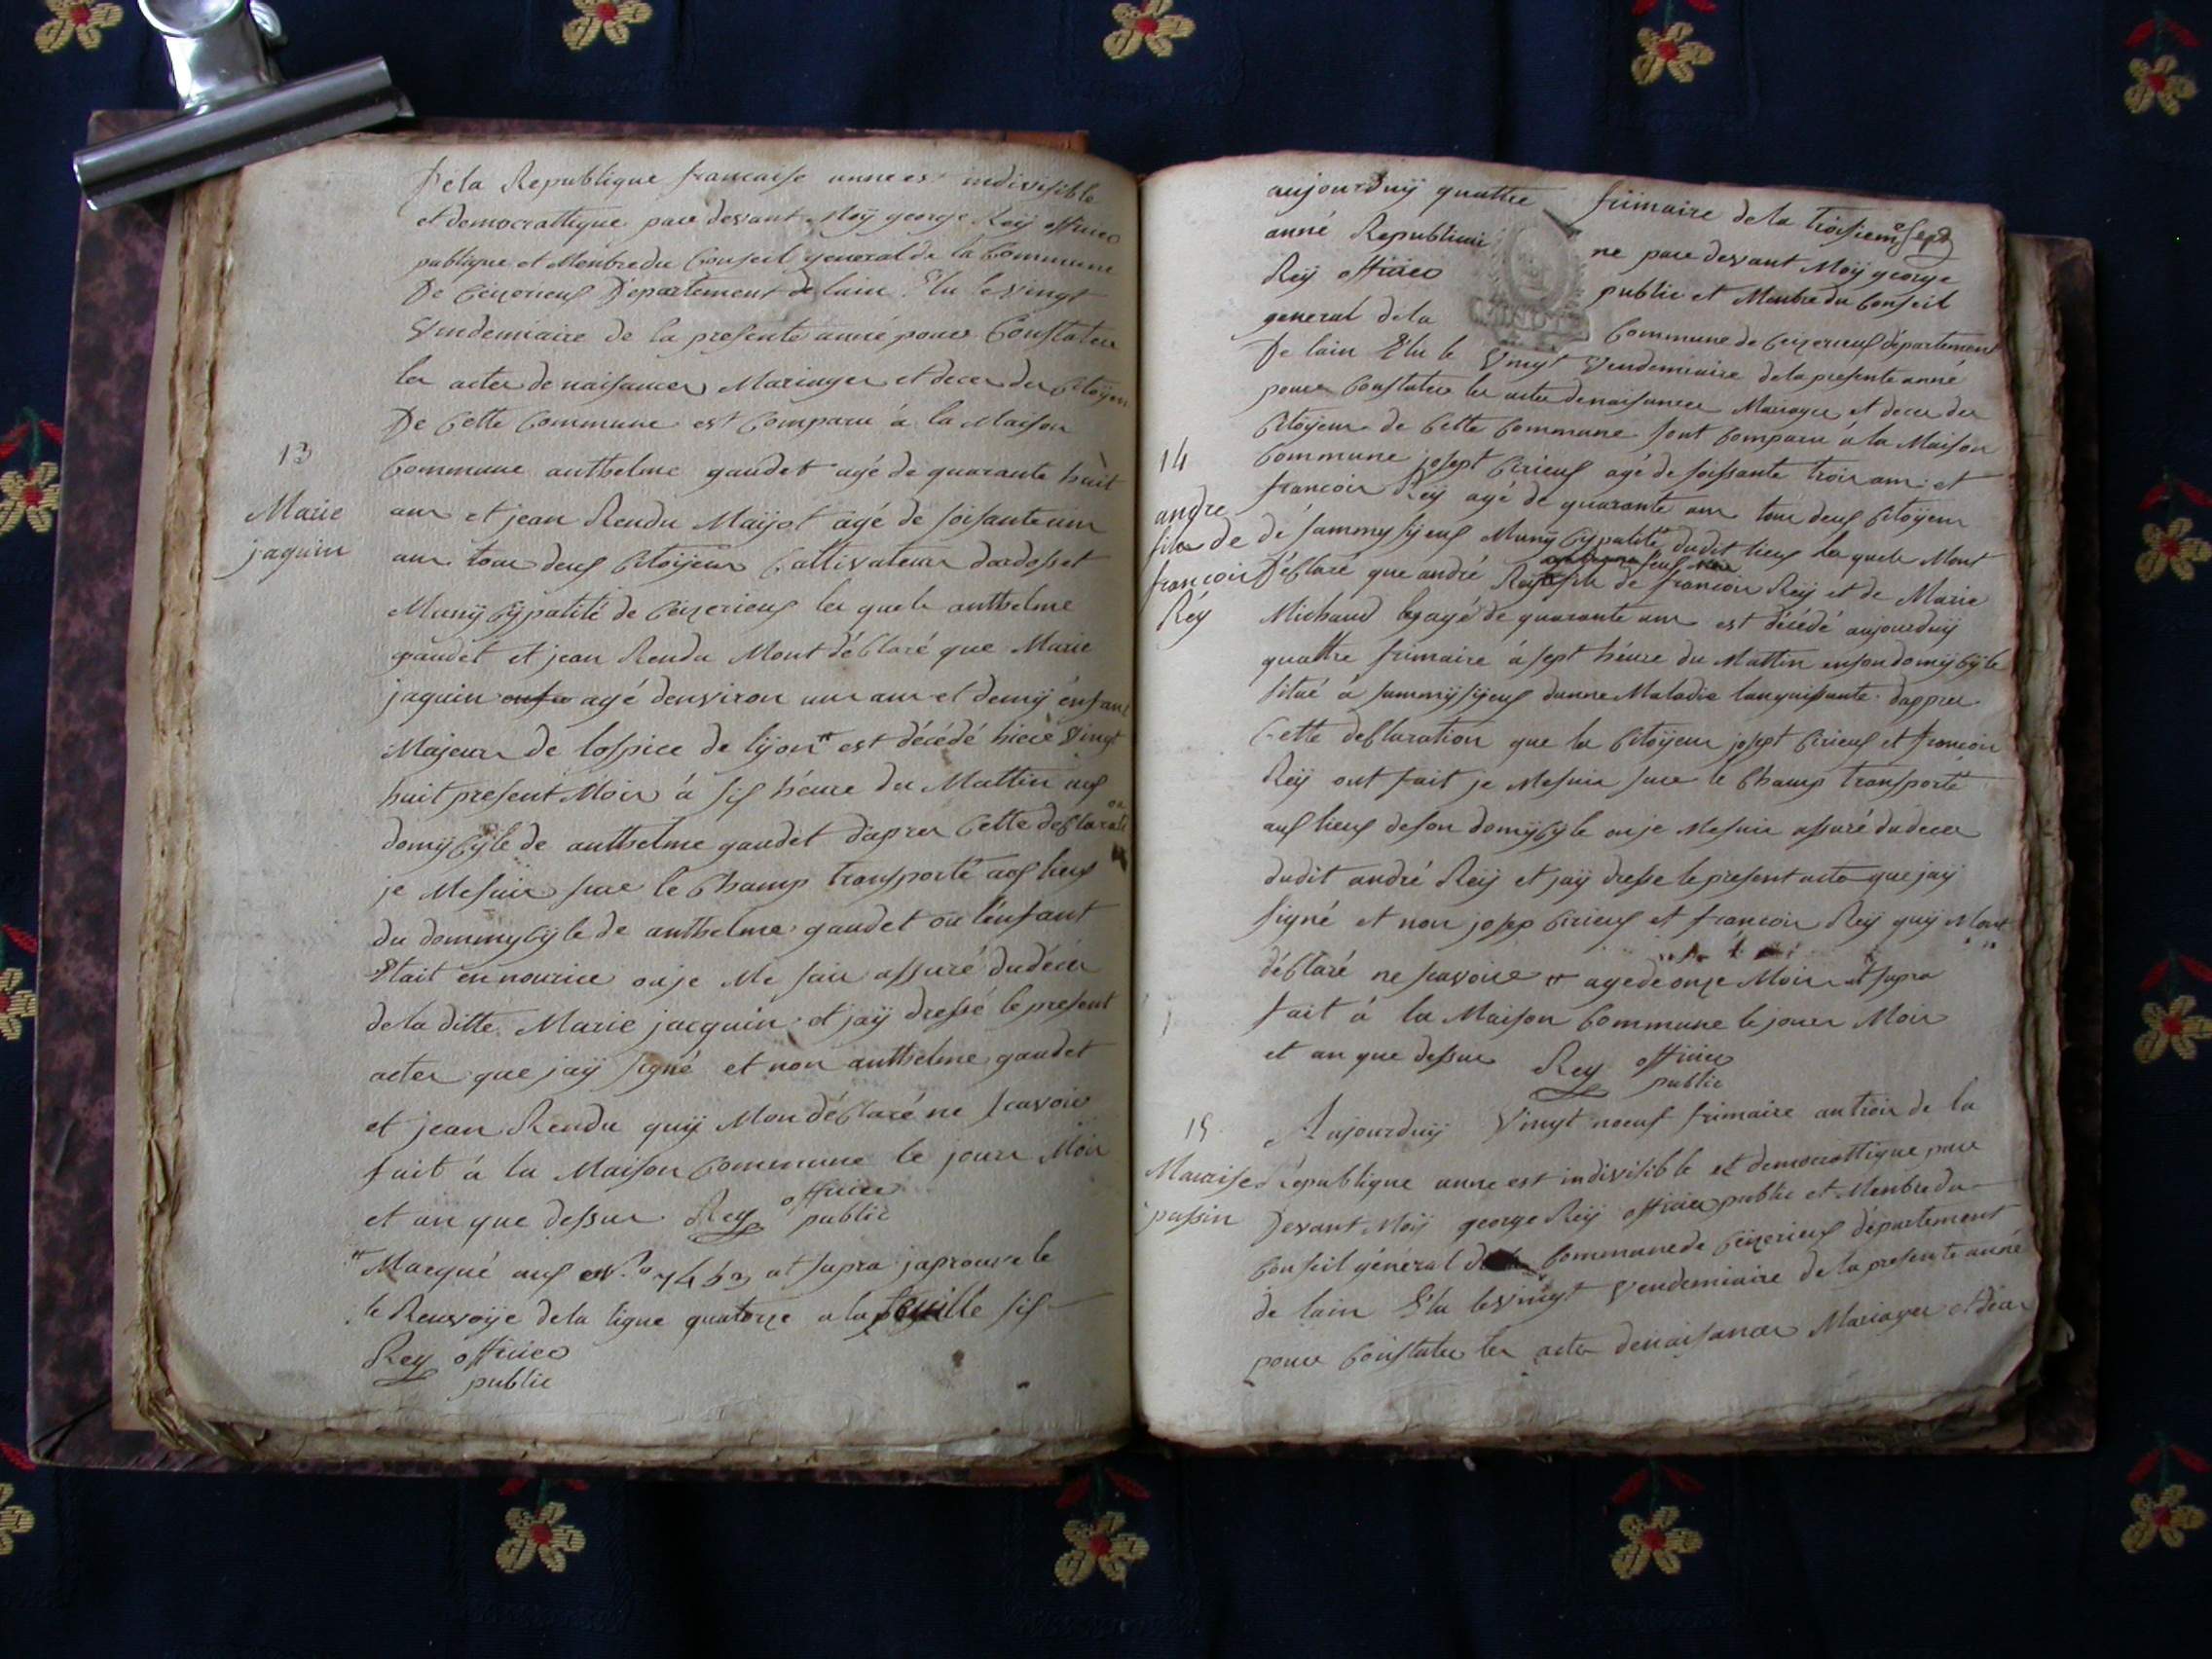 De la Republique francaise unne est indivisible
et democrattique pare devant Moÿ george Reÿ officiéo
publique et Menbre du Conseil general de la Commune
De Ceizerieuf Département de lain Elu le vingt
Vendemiaire de la presente anné pour Constater
les actes de naisances Mariages et deces des Citoÿens
De Cette Commune est Comparu á la Maison
13
Commune anthelme gaudet agé de quarante huit
Marie
jaquin
ans et jean Rendu Maÿot agé de soisante
ans tous deuf Citoÿens Cultivateurs dardosset
Munÿcÿpalité de Ceizerieuf les quels anthelme
gaudet et jean Rendu Mont déClaré que Marie
jaquin agé denviron un ans et demÿ énfant
Majeurs de lospice de lÿon est décédé hiere vingt
huit present Mois á sif héure du Mattin auf
domÿcÿle de anthelme gaudet dapres Cette deClarati
on
je Mesuis sure le Champ transporté auf lieuf
du dommycÿle de anthelme gaudet ou lénfant
Etait en nourice ou je Me suis assuré du déces
de la ditte Marie jacquin et jaÿ dressé le present
actes que jaÿ signé et non anthelme gaudet
et jean Rendu quÿ Mon déClaré ne scavoire
fait á la Maison Commune le jours Mois
et an que dessus Rey officiéo
public
Marqué auf N.o 7463 ut supra japrouve le
le Renvoÿe de la ligne quatorze a la feuille sif
Rey officiéo
public
aujourduÿ quattre frimaire de la troisieme Sept
anné Republicai ne pare devant Moÿ george
Reÿ officiéo public et Menbre du Conseil
general de la Commune de Ceizerieuf département
De lain Elu le vingt Vendemiaire de la presente anné
poure Constater les actes denaisances Mariages et deces des
Citoÿens de Cette Commune sont Comparu á la Maison
14
Commune josept Cirieuf agé de soissante trois ans et
francois Reÿ agé de quarante ans tous deuf Citoÿens
andre
fils de
francois
Réy
de sammysÿeuf Munycÿpalité dudit lieuf les quels Mont
déClaré que andré Reÿ fils de francois Reÿ et de Marie
Michaud agé de quarante ans est décédé aujourduÿ
quattre frimaire á sept héure du Mattin en son domÿcÿle
situé á sammÿsÿeuf dunne Maladie languissante dapres
Cette deClaration que les Citoÿens josept Cirieuf et francois
Reÿ ont fait je Mesuis sure le Champ transporté
auf lieuf de son domÿcÿle ou je Mesuis assuré du deces
dudit andré Reÿ et jaÿ dresse le present acte que jaÿ
signé et non josep Cirieuf et francois Reÿ quÿ Mont
déClaré ne scavoire agé de onze Mois ut supra
fait á la Maison Commune le jours Mois
et an que dessus Rey officiéo
public
15
Aujourduÿ Vingt noeuf frimaire an trois de la
Maraise
passin
République unne est indivisible et democrattique pare
Devant Moÿ george Reÿ officiéo public et Menbre du
Conseil général de la Commune de Ceizerieuf département
de lain Elu le vingt Vendemiaire de la presente anné
poure Constater les actes denaisances Mariages et déces